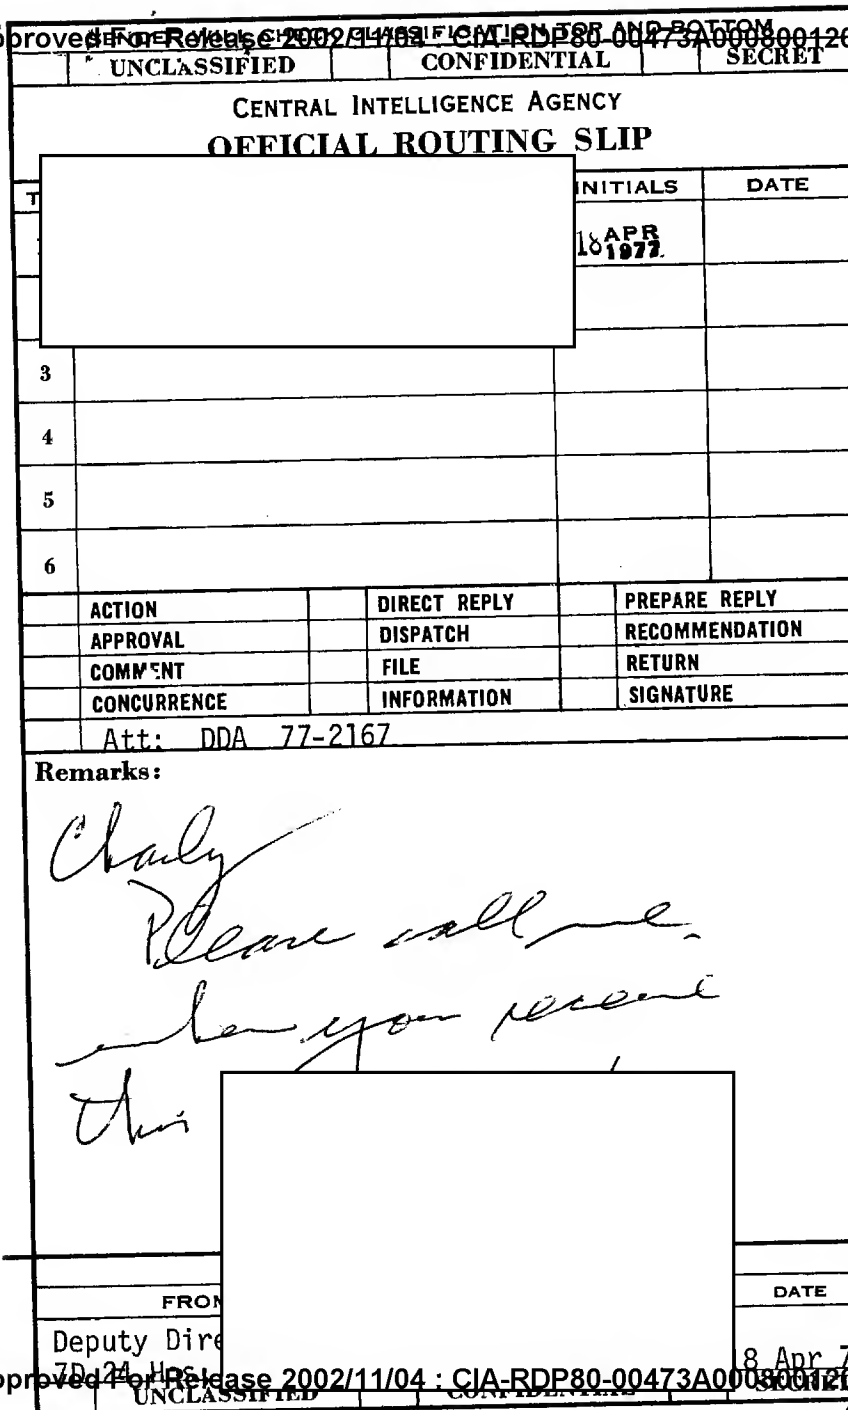 SENDER WILL CHECK CLASSIFICATION TOP AND BOTTOM
pproved For Release 2002/11/04 : CIA-RDP80-00473A00080012
UNCLASSIFIED CONFIDENTIAL SECRET
CENTRAL INTELLIGENCE AGENCY
OFFICIAL ROUTING SLIP
INITIALS DATE
18 APR 1977
3
4
5
6
ACTION DIRECT REPLY PREPARE REPLY
APPROVAL DISPATCH RECOMMENDATION
COMMENT FILE RETURN
CONCURRENCE INFORMATION SIGNATURE
Att: DDA 77-2167
Remarks:
Charly
Please call me
when you receive
this
FROM DATE
Deputy Dire
7D 24 Hqs 8 Apr 7
pproved For Release 2002/11/04 : CIA-RDP80-00473A00080012
UNCLASSIFIED CONFIDENTIAL SECRET